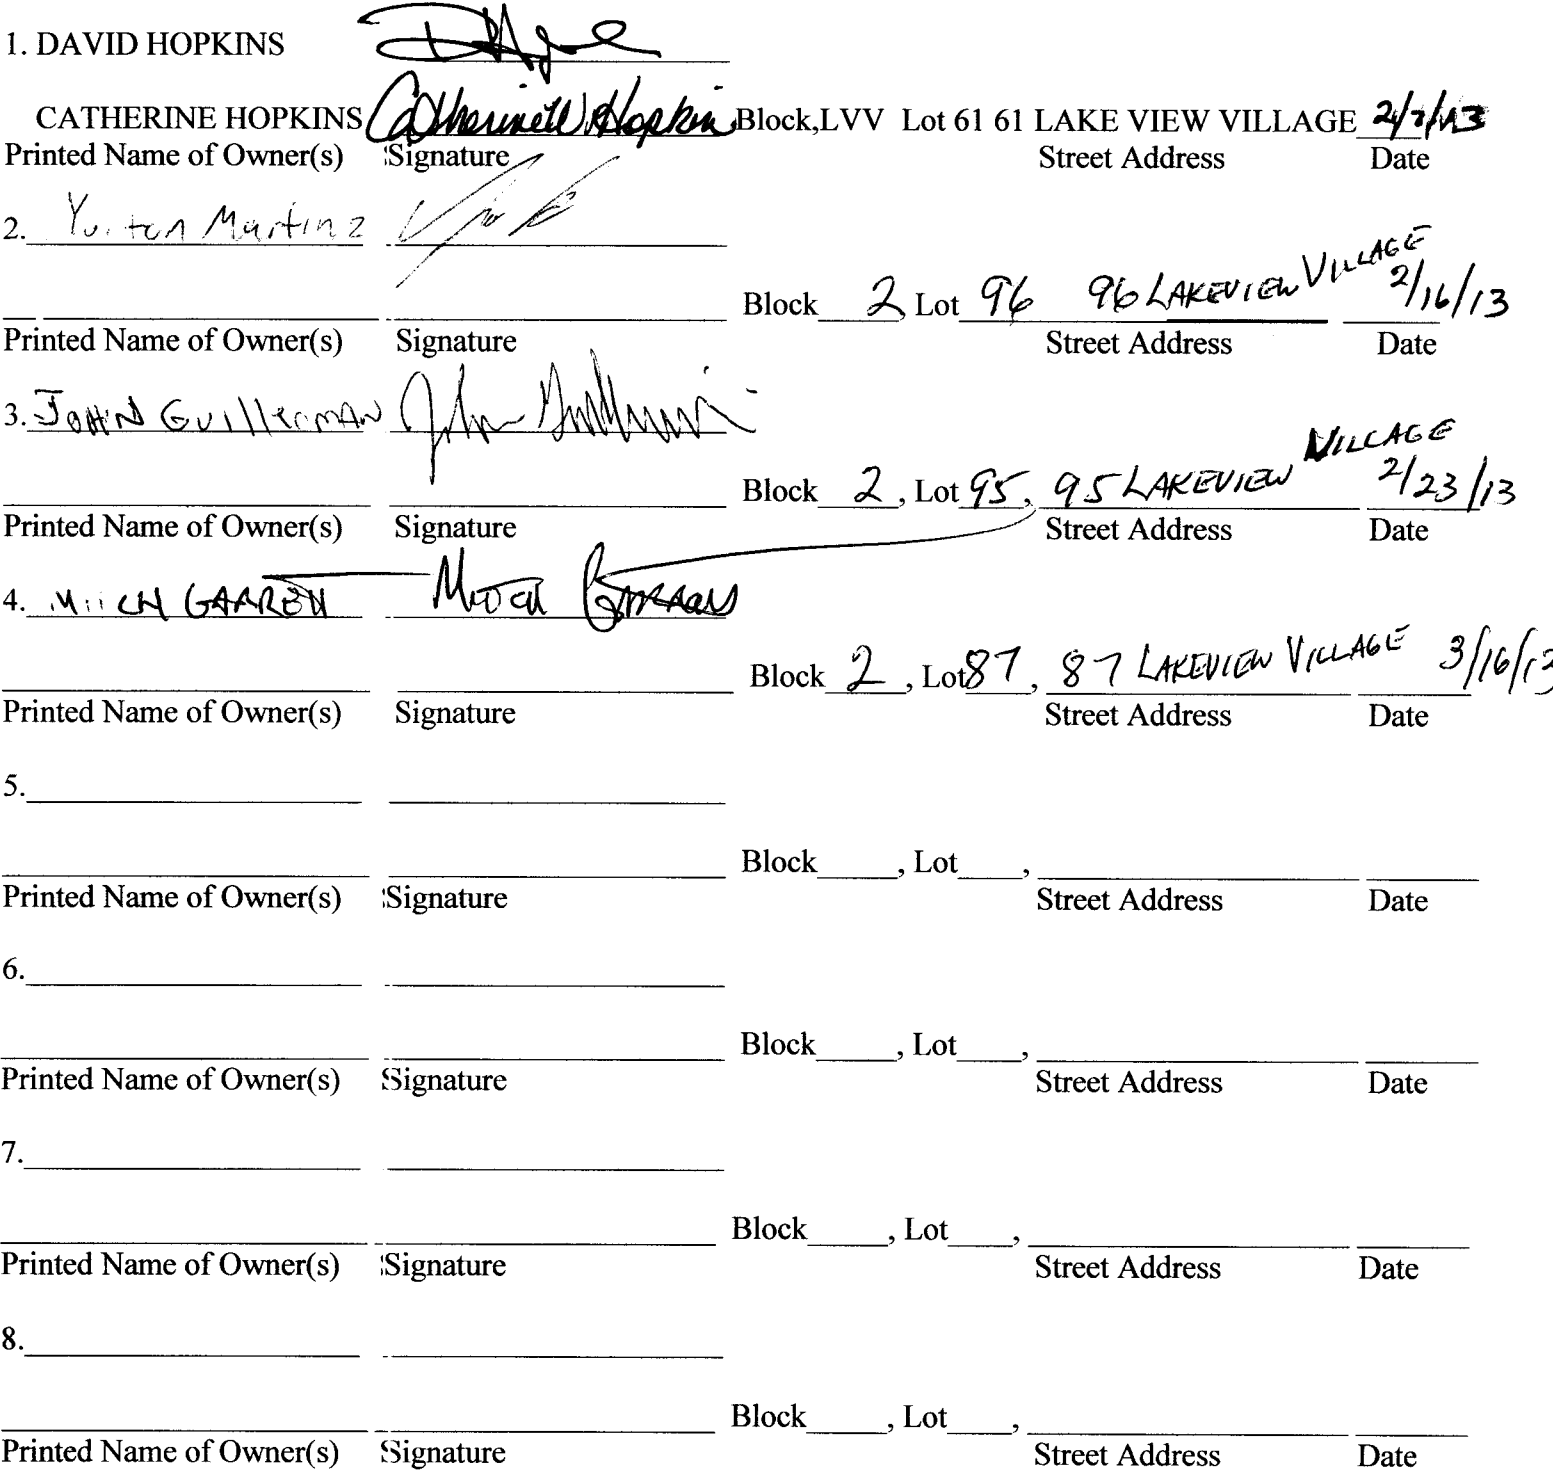 1. DAVID HOPKINS
CATHERINE HOPKINS Catherine W. Hopkins Block,LVV Lot 61 61 LAKE VIEW VILLAGE 2/7/13
Printed Name of Owner(s) Signature Street Address Date
2. Martinz
Block 2, Lot 96 96 LAKEVIEW VILLAGE 2/16/13
Printed Name of Owner(s) Signature Street Address Date
3. JOHN GUILLERMAN John Guillerman
Block 2, Lot 95, 95 LAKEVIEW VILLAGE 2/23/13
Printed Name of Owner(s) Signature Street Address Date
4. MITCH GARREN MITCH
Block 2, Lot 87, 87 LAKEVIEW VILLAGE 3/16/13
Printed Name of Owner(s) Signature Street Address Date
5.
Block , Lot ,
Printed Name of Owner(s) Signature Street Address Date
6.
Block , Lot ,
Printed Name of Owner(s) Signature Street Address Date
7.
Block , Lot ,
Printed Name of Owner(s) Signature Street Address Date
8.
Block , Lot ,
Printed Name of Owner(s) Signature Street Address Date